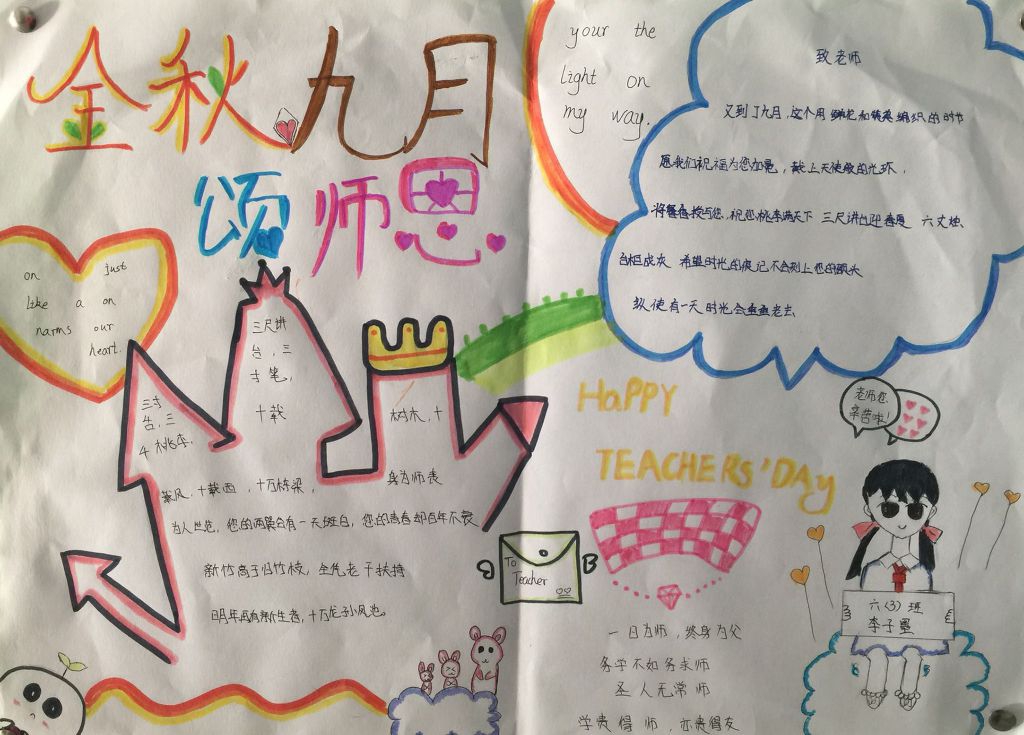 金秋九月
颂师恩
your the
light on
my way.
致老师
又到了九月,这个用鲜花和精英编织的时节
愿我们祝福为您加冕,戴上天使般的光环,
将馨香授与您,祝您桃李满天下 三尺讲台迎春夏 六丈桂、
台柜成灰 希望时光的痕记不会刻上您的额头
纵使有一天时光会垂垂老去
on just
like a on
narms our
heart.
三寸
台,三
4 桃李.
三尺讲
台,三
寸笔,
十载
树木,十
春风,十载西,十万栋梁,
身为师表
为人生范,您的两鬓会有一天斑白,您的青春却百年不衰
新竹高于旧竹枝,全凭老干扶持
明年再有新生者,十万龙孙凤池。
HaPPY
TEACHERS'DAy
To
Teacher
老师您
辛苦啦!
六(3)班
李子墨
一日为师,终身为父
务学不如务求师
圣人无常师
学贵得师,亦贵得友